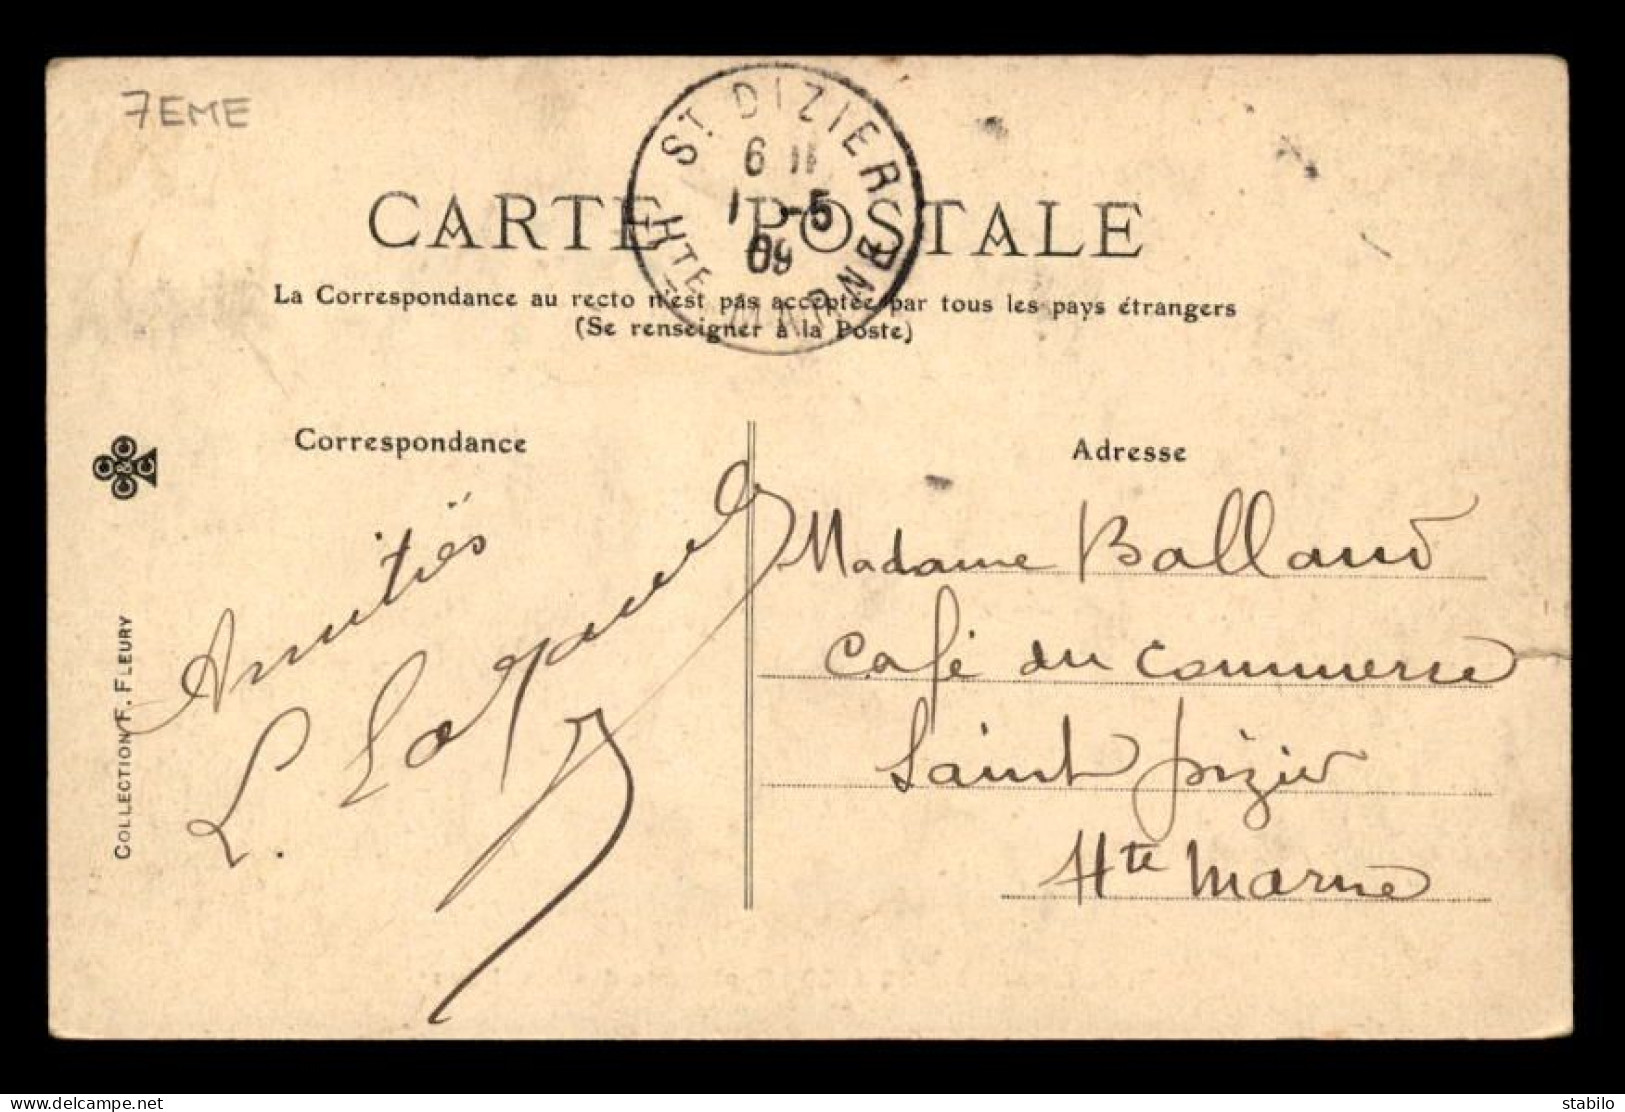 7EME
ST. DIZIER
6 11
1 -5
09
HTE MARNE
CARTE POSTALE
La Correspondance au recto n'est pas acceptée par tous les pays étrangers
(Se renseigner à la Poste)
Correspondance
Amitiés
COLLECTION F. FLEURY
C C & C C
Adresse
Madame Balland
Café du Commerce
Saint Dizier
Hte Marne
Delcampe.net
stabilo